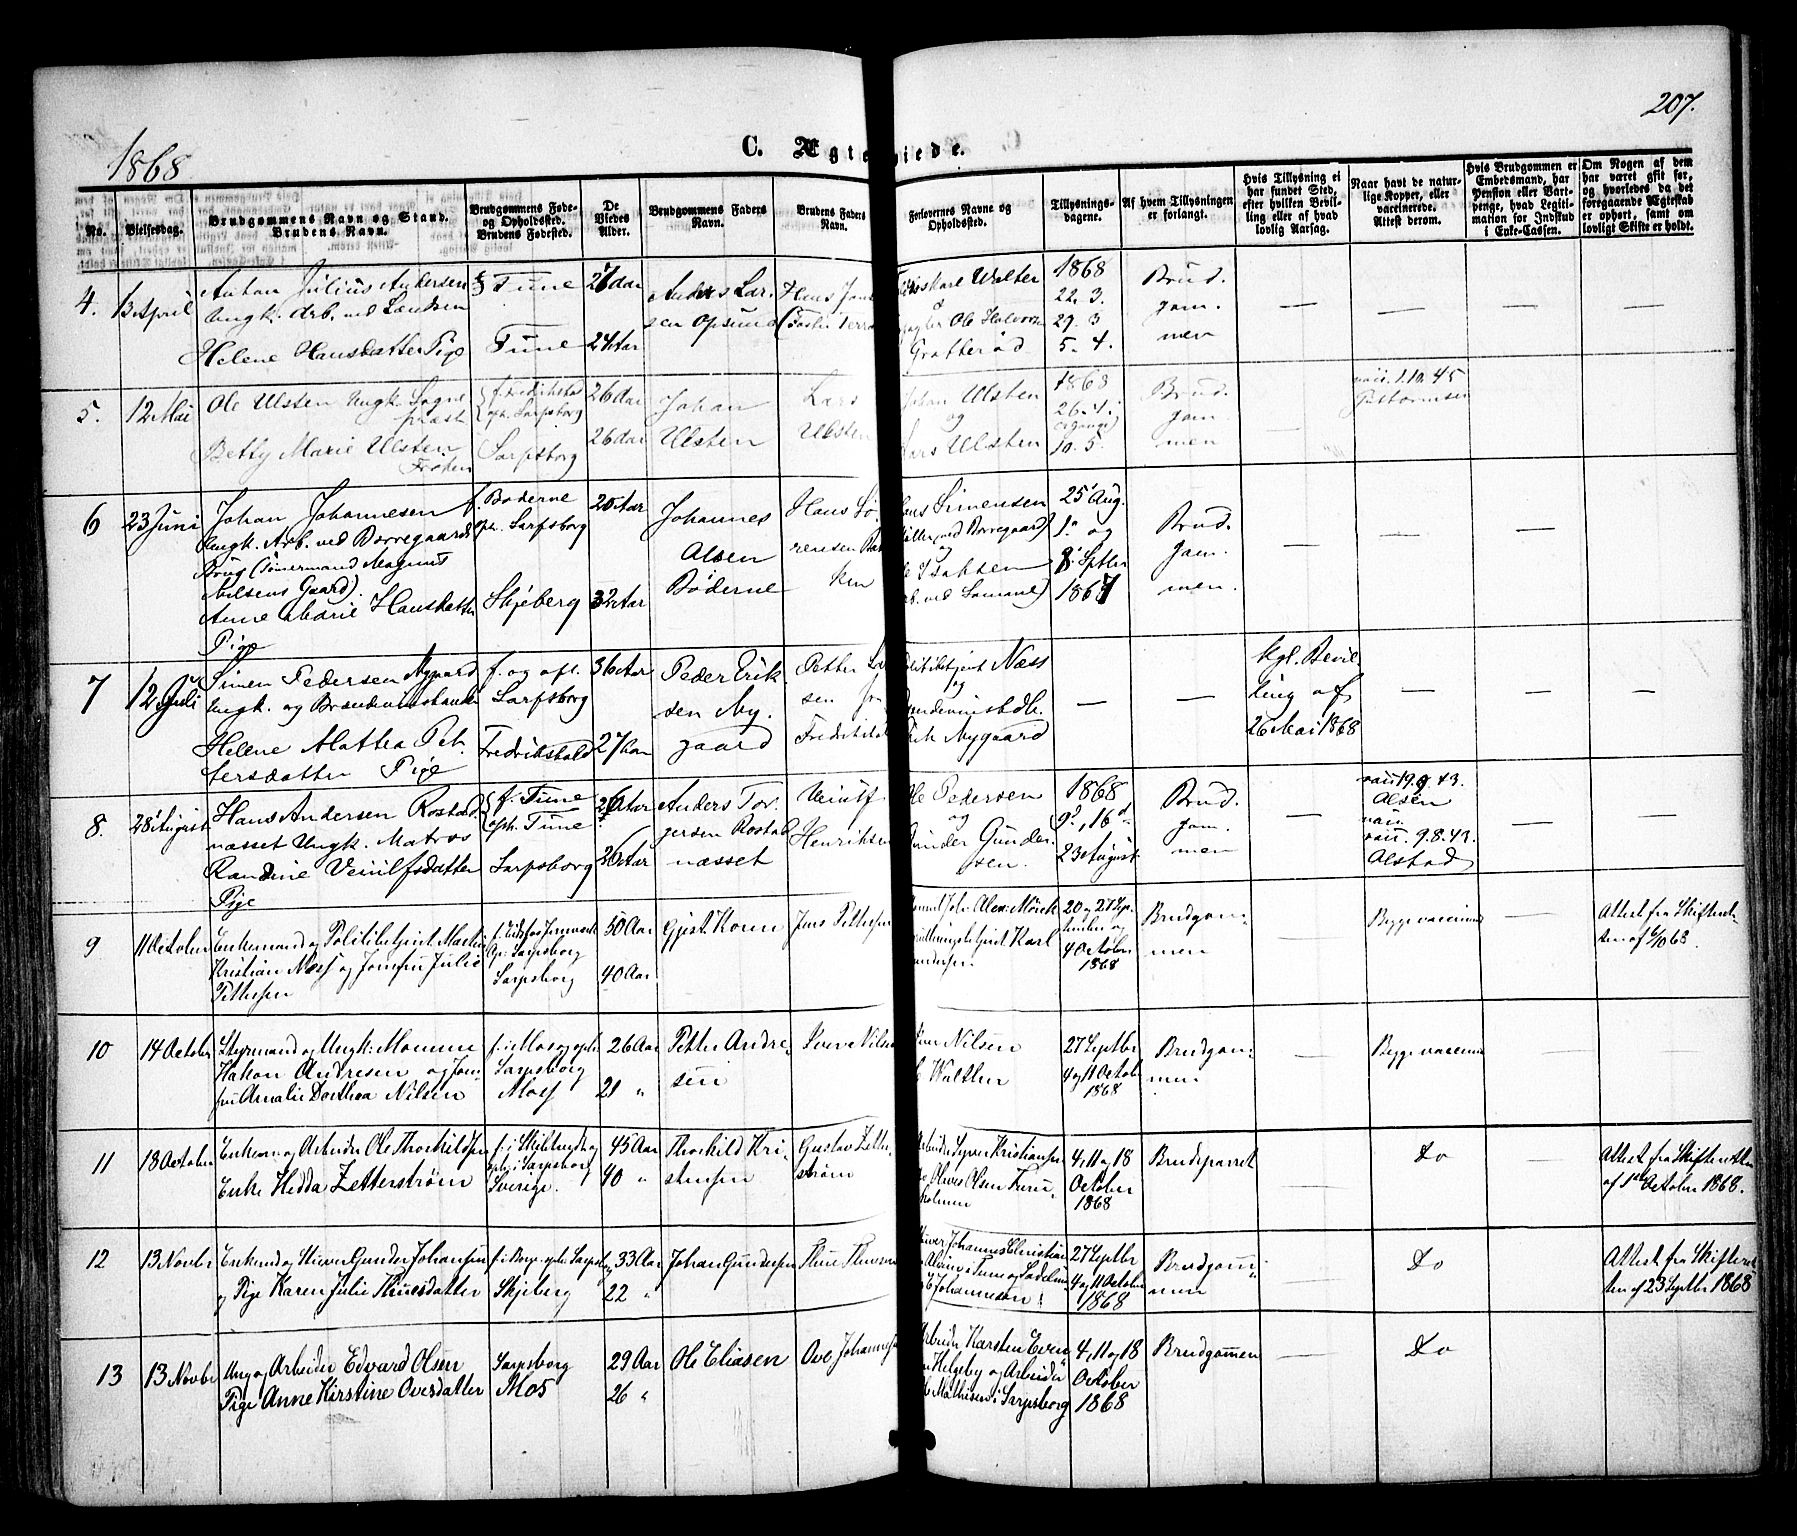 1868
C. Ægteviede.
207.
No.
Vielsesdag.
Brudgommens Navn og Stand.
Brudens Navn.
Brudgommens Føde-
og Opholdssted.
Brudens Fødested.
De
Viedes
Alder.
Brudgommens Faders
Navn.
Brudens Faders
Navn.
Forlovernes Navne og
Opholdssted.
Tillysnings-
dagene.
Af hvem Tillysningen
er forlangt.
Hvis Tillysning ei
har fundet Sted,
efter hvilken Bevil-
ling eller af hvad
lovlig Aarsag.
Naar havt de natur-
lige Kopper, eller
vaccinerede.
Attest derom.
Hvis Brudgommen er
Embedsmand, har
Pension eller Vart-
penge, hvad Legiti-
mation for Indskud
i Enke-Cassen.
Om Nogen af dem
har været gift før,
og hvorledes da det
foregaaende Ægteskab
er ophørt, samt om
lovligt Skifte er holdt.
4.
13 April
Anton Julius Andersen
Ungk. Arb. ved
Helene Hansdatter Pige
Tune
Tune
27 Aar
24 Aar
Anders Lar-
sen Opsund
Hans
Karl Walter
Ole Halvorsen
Grotterød
1868
22. 3.
29. 3
5. 4.
Brud.
gom.
men
5.
12 Mai
Ole Ulsten Ungk. Sogne
præst
Betty Marie Ulsten
Frøken
f. Fredrikstad
oph. Sarpsborg
Sarpsborg
26 Aar
26 Aar
Johan
Ulsten
Lars
Ulsten
Johan Ulsten
og
Lars Ulsten
1868
26. 4.
10. 5.
Brud.
gom.
men
1.10.45
6
23 Juni
Johan Johannesen
Ungk. Arb. ved Borregaards
Brug (Tømermand Magnus
Nilsens Gaard).
Anne Marie Hansdatter
Pige
f. Bøderne
oph. Sarpsborg
Skjeberg
32 Aar
Johannes
Olsen
Bøderne
Hans Sø-
rensen
ken
Simensen
ved Borregaard)
og
Isaksen
25 Aug.
1. og
8. Septbr
1867
Brud.
gom.
men.
7
12 Juli
Simen Pedersen Nygaard
Ungk. og Brændevinshandler
Helene Mathea Pet-
tersdatter Pige
f. og oph.
Sarpsborg
Fredrikshald
36 Aar
27 Aar
Peder Erik
sen Ny.
gaard
Petter
sen fra
Fredrikshald
Politibetjent Næss
og
Brændevinshdl.
Erik Nygaard
kgl. Bevil-
ling af
26 Mai 1868
8.
28 August
Hans Andersen Rostad
næsset Ungk. Matros
Randine Veiulfsdatter
Pige
f. Tune
oph. Tune
Sarpsborg
26 Aar
Anders Tor-
gersen Rostad
næsset
Veiulf
Henriksen
Ole Pedersen
og
Gunder Gunder-
sen.
1868
9d, 16d
23 August
Brud.
gom.
men
Olsen
vacc. 9.8.43.
Alstad
9
11 October
Enkemand og Politibetjent Martin
Kristian Næss og Jomfru Julie
Pettersen
Op. Sarpsborg
Sarpsborg
50 Aar
40 Aar
Gjest. Korn
Jens Pettersen
Mørch
Karl
Gundersen
20 og 27 Sep-
tember og
4 October
1868
Brudgom-
men
Begge vaccine
Attest fra Skifteret-
ten af 6/10 68.
10
14 October
Styrmand og Ungk: Momme
Hakon Andresen og Jom-
fru Amalie Dorthea Nilsen
f: i Mos og oph:
Sarpsborg
Moss
26 Aar
21 "
Petter Andre-
sen
Iver Nilsen
Iver Nilsen
Walther
27 Septbr
4 og 11 October
1868
Brudgom-
men
Begge vaccine
11
18 October
Enkem. og Arbeider Ole Thorkildsen
Enke Hedda Zetterstrøm
f: i
oph: i Sarpsborg
Sverige.
45 Aar
40 "
Thorkild Kri-
stensen
Gustav Zetter-
strøm
Arbeider Syver Kristiansen
Olsen Furu-
holmen
4, 11 og 18
October
1868
Brudeparret
Do
Attest fra Skifteretten
af 1ste October 1868.
12
13 Novbr
Enkemd og Skriver Gunder Johansen
og Pige Karen Julie Thuesdatter
f: i Borge oph: Sarpsborg
Skjeberg
33 Aar
22 "
Johan Gundersen
Thue Thuesen
Johannes Christian
Johannesen
27 Septbr
4 og 11 October
1868
Brudgom-
men
Do
Attest fra Skifteret-
ten af 23 Septbr 1868
13
13 Novbr
Ung og Arbeider Edvard Olsen
Pige Anne Kirstine Ovesdatter
Sarpsborg
Mos
29 Aar
26 "
Ole Eliasen
Ove Johannesen
Arbeider Karsten Even-
Helgeby og Arbeider
Mathisen i Sarpsborg
4, 11 og 18
October
1868
Brudgommen
Do